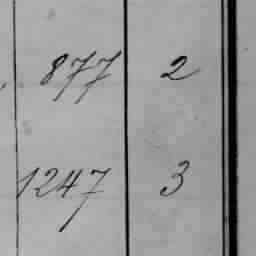 877 2
1247 3